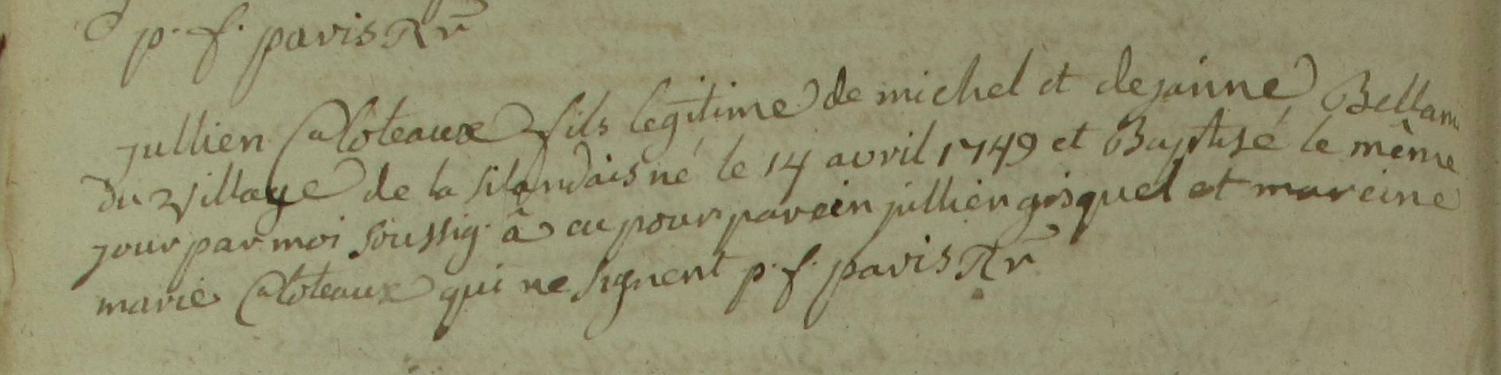 p. f. paris Rr
jullien Caloteaux fils legitime de michel et de janne Bellam
du village de la silandais né le 14 avril 1749 et Baptisé le même
jour par moi soussig. â eu pour parein jullien gisquel et mareine
marie Caloteaux qui ne signent p. f. paris Rr